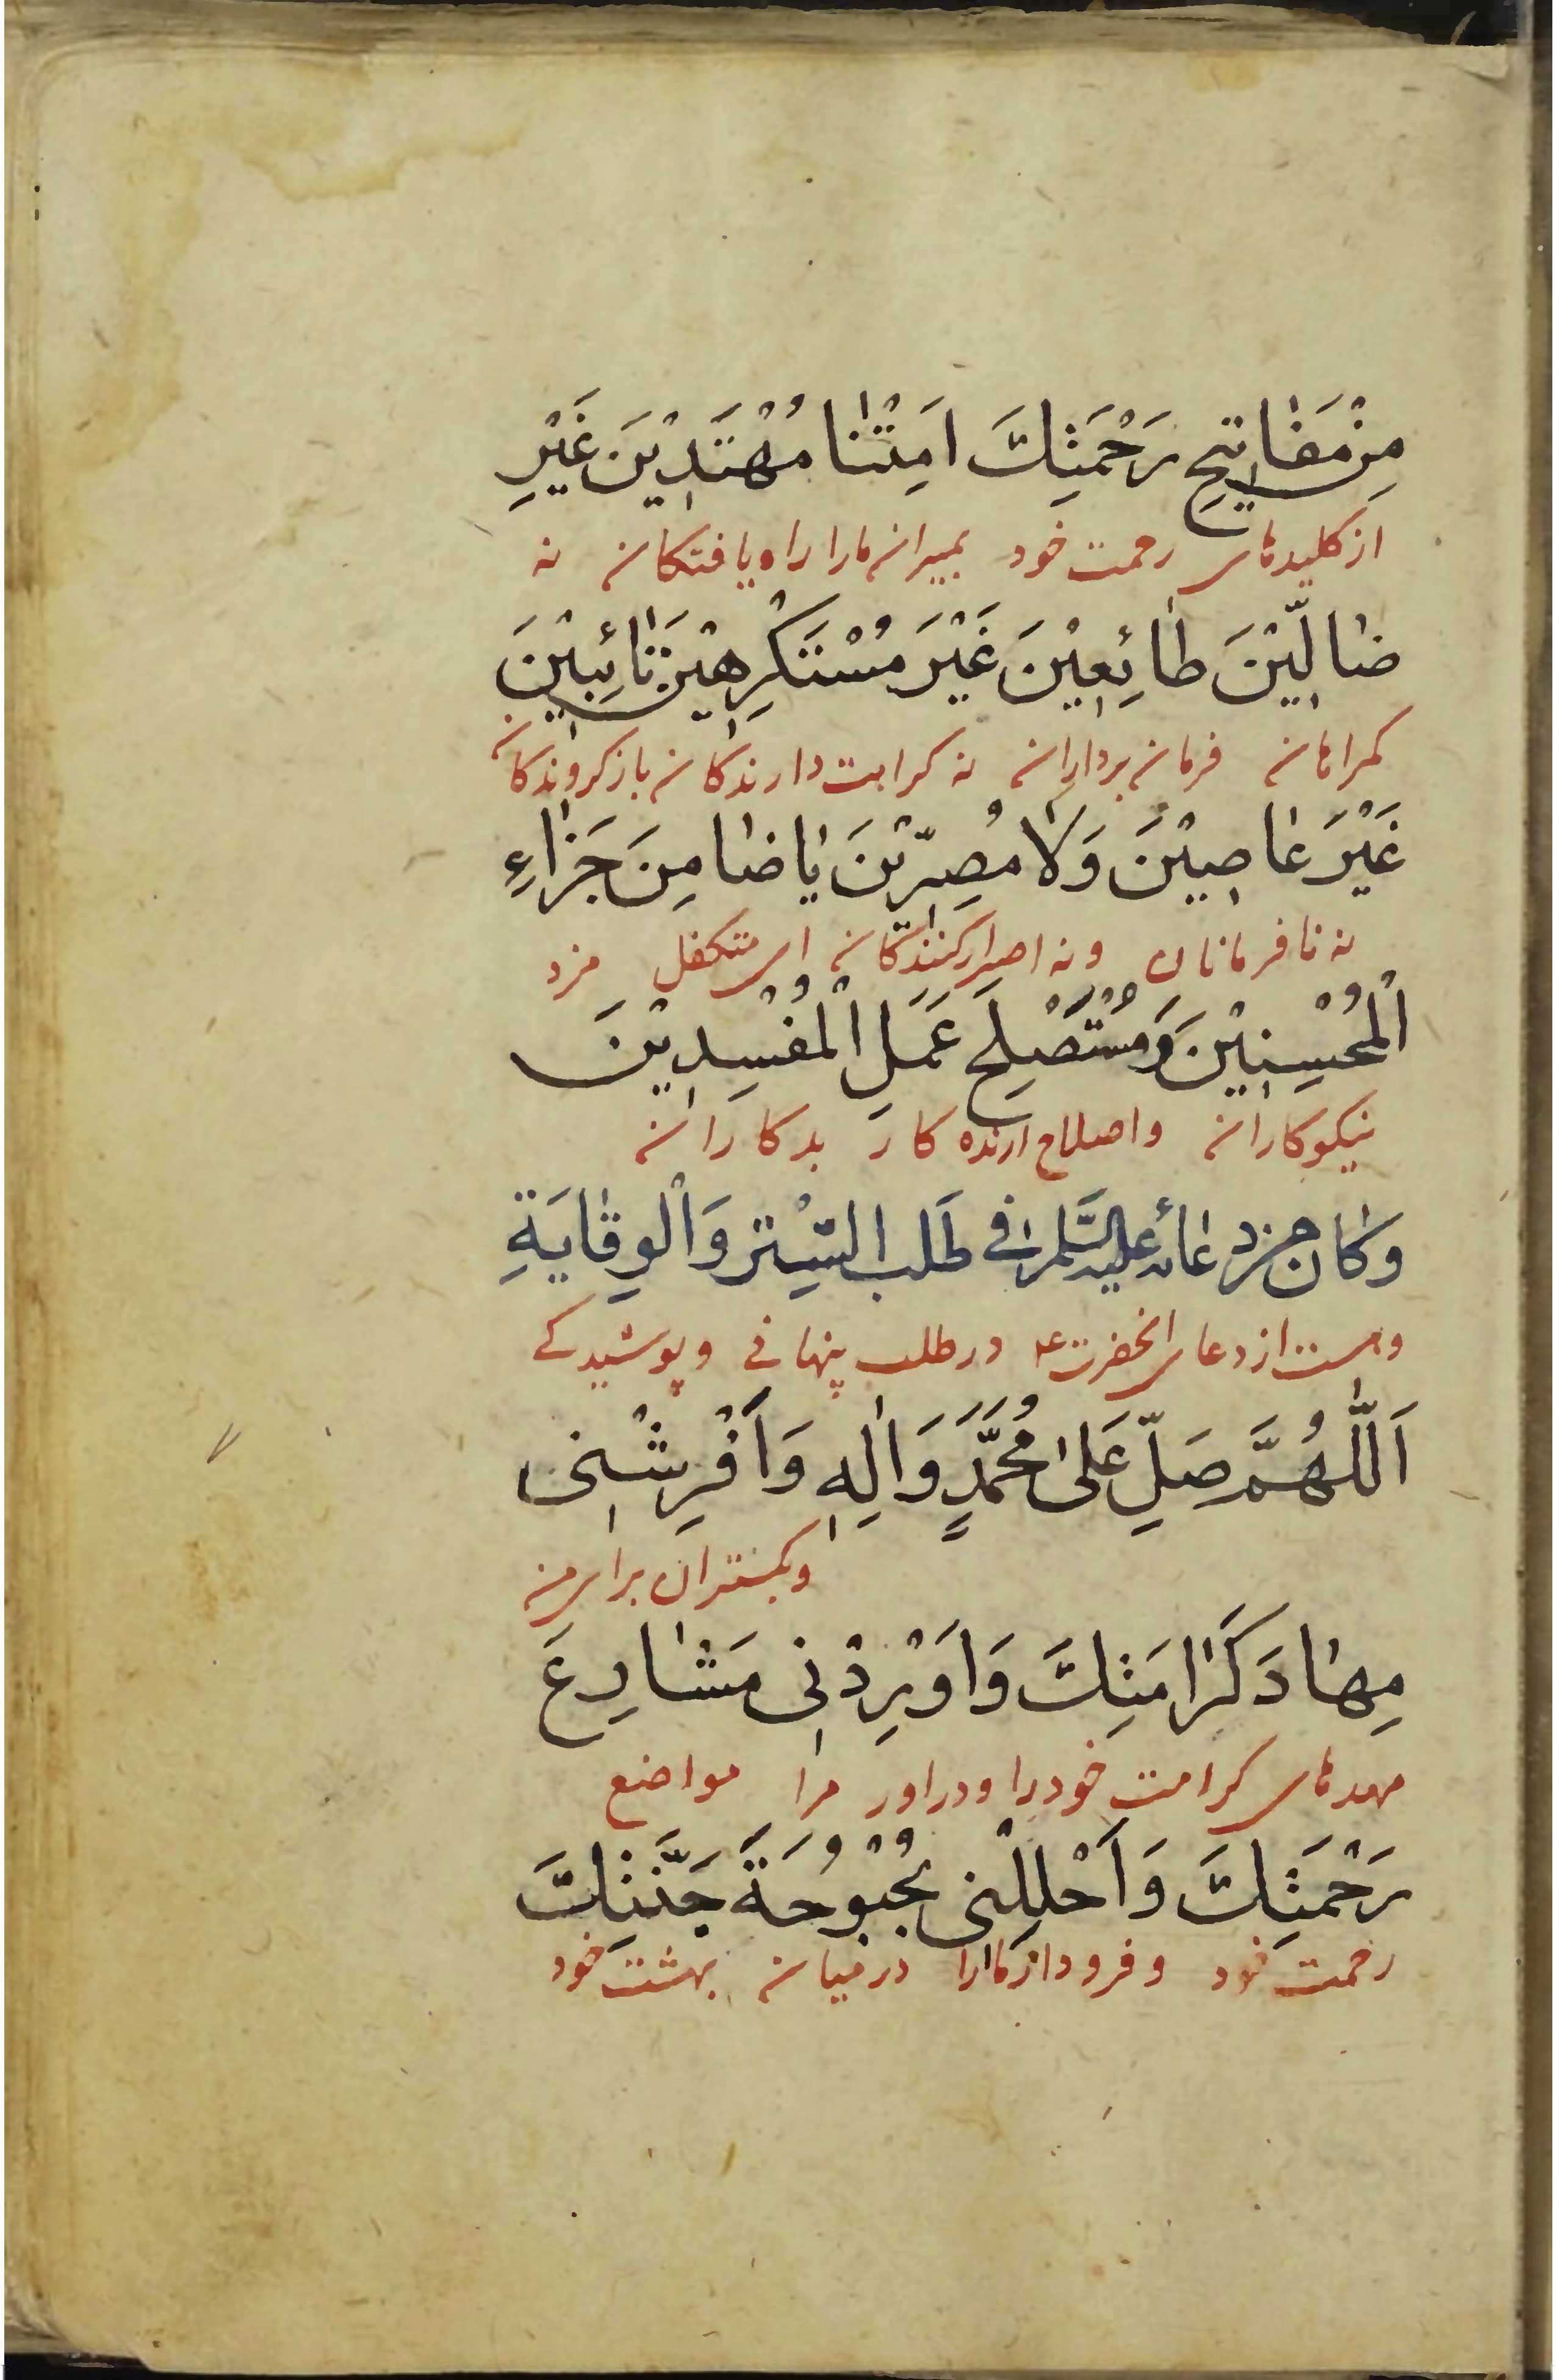 مِنْ مَفٰاتيٖحِ رَحْمَتِكَ اَمِتْنٰا مُهْتَديٖنَ غَيْرِ
از کلیدهای رحمت خود بمیران مارا راه یافتکان نه
ضٰالّيٖنَ طٰائِعيٖنَ غَيْرَ مُسْتَكْرِهيٖنَ تٰائِبيٖنَ
کمراهان فرمان برداران نه کراهت دارندکان بازکروندکان
غَيْرَ عٰاصيٖنَ وَلٰا مُصِرّيٖنَ يٰا ضٰامِنَ جَزٰاءِ
نه نافرمانان ونه اصرارکنندکان ای متکفل مزد
الْمُحْسِنيٖنَ وَمُسْتَصْلِحَ عَمَلِ الْمُفْسِديٖنَ
نیکوکاران واصلاح ارنده کار بدکاران
وكٰان من دعٰائه عليه السّلام في طَلَب السِّتر وَالْوِقٰايَةِ
وهست از دعای انحضرت ع در طلب پنهانی و پوشیدکی
اَللّٰهُمَّ صَلِّ عَلىٰ مُحَمَّدٍ وَاٰلِهٖ وَاَفْرِشْنىٖ
وبکستران برای من
مِهٰادَ كَرٰامَتِكَ وَاَوْرِدْنىٖ مَشٰارِعَ
مهدهای کرامت خودرا ودراور مرا مواضع
رَحْمَتِكَ وَاَحْلِلْنى بُحْبُوحَةَ جَنَّتِكَ
رحمت خود وفرود ار مارا درمیان بهشت خود